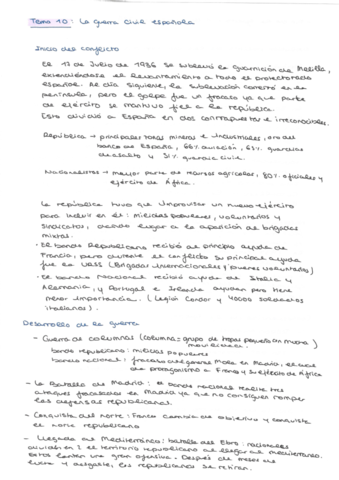 Tema 10: La guerra civil española
Inicio del conflicto
El 17 de Julio de 1936 se sublevó la guarnición de Melilla,
extendiéndose el levantamiento a todo el protectorado
español. Al día siguiente, la sublevación comenzó en la
península, pero el golpe fue un fracaso ya que parte
de ejército se mantuvo fiel a la república.
Esto dividió a España en dos contrapuestos e irreconciliables.
República → principales zonas mineras e industriales, oro del
banco de España, 66% aviación, 65% guardias
de asalto y 51% guardia civil.
Nacionalistas → mayor parte de recursos agrícolas, 80% oficiales y
ejército de África.
La república tuvo que improvisar un nuevo ejército
para incluir en él: milicias populares, voluntarios y
sindicatos, dando lugar a la aparición de brigadas
mixtas.
· El bando Republicano recibió al principio ayuda de
Francia, pero durante el conflicto su principal ayuda
fue la URSS (Brigadas Internacionales / jóvenes voluntarios)
· El bando nacional recibió ayuda de Italia y
Alemania, y Portugal e Irlanda ayudan pero tiene
menor importancia. (Legión Cóndor y 40000 soldados
italianos).
Desarrollo de la guerra
- Guerra de columnas (columna = grupo de tropas pequeñas en
movilidad)
bando republicano: milicias populares
bando nacional: fracaso del general Mola en Madrid, el cual
da protagonismo a Franco y su ejército de África
- La Batalla de Madrid: el bando nacional realiza tres
ataques focalizados en Madrid ya que no consiguen romper
las defensas republicanas.
- Conquista del norte: Franco cambia de objetivo y conquista
el norte republicano
- Llegada al Mediterráneo: batalla del Ebro: nacionales
dividen el territorio republicano al llegar al mediterráneo.
Estos lanzan una gran ofensiva. Después de meses de
lucha y desgaste, los republicanos se retiran.